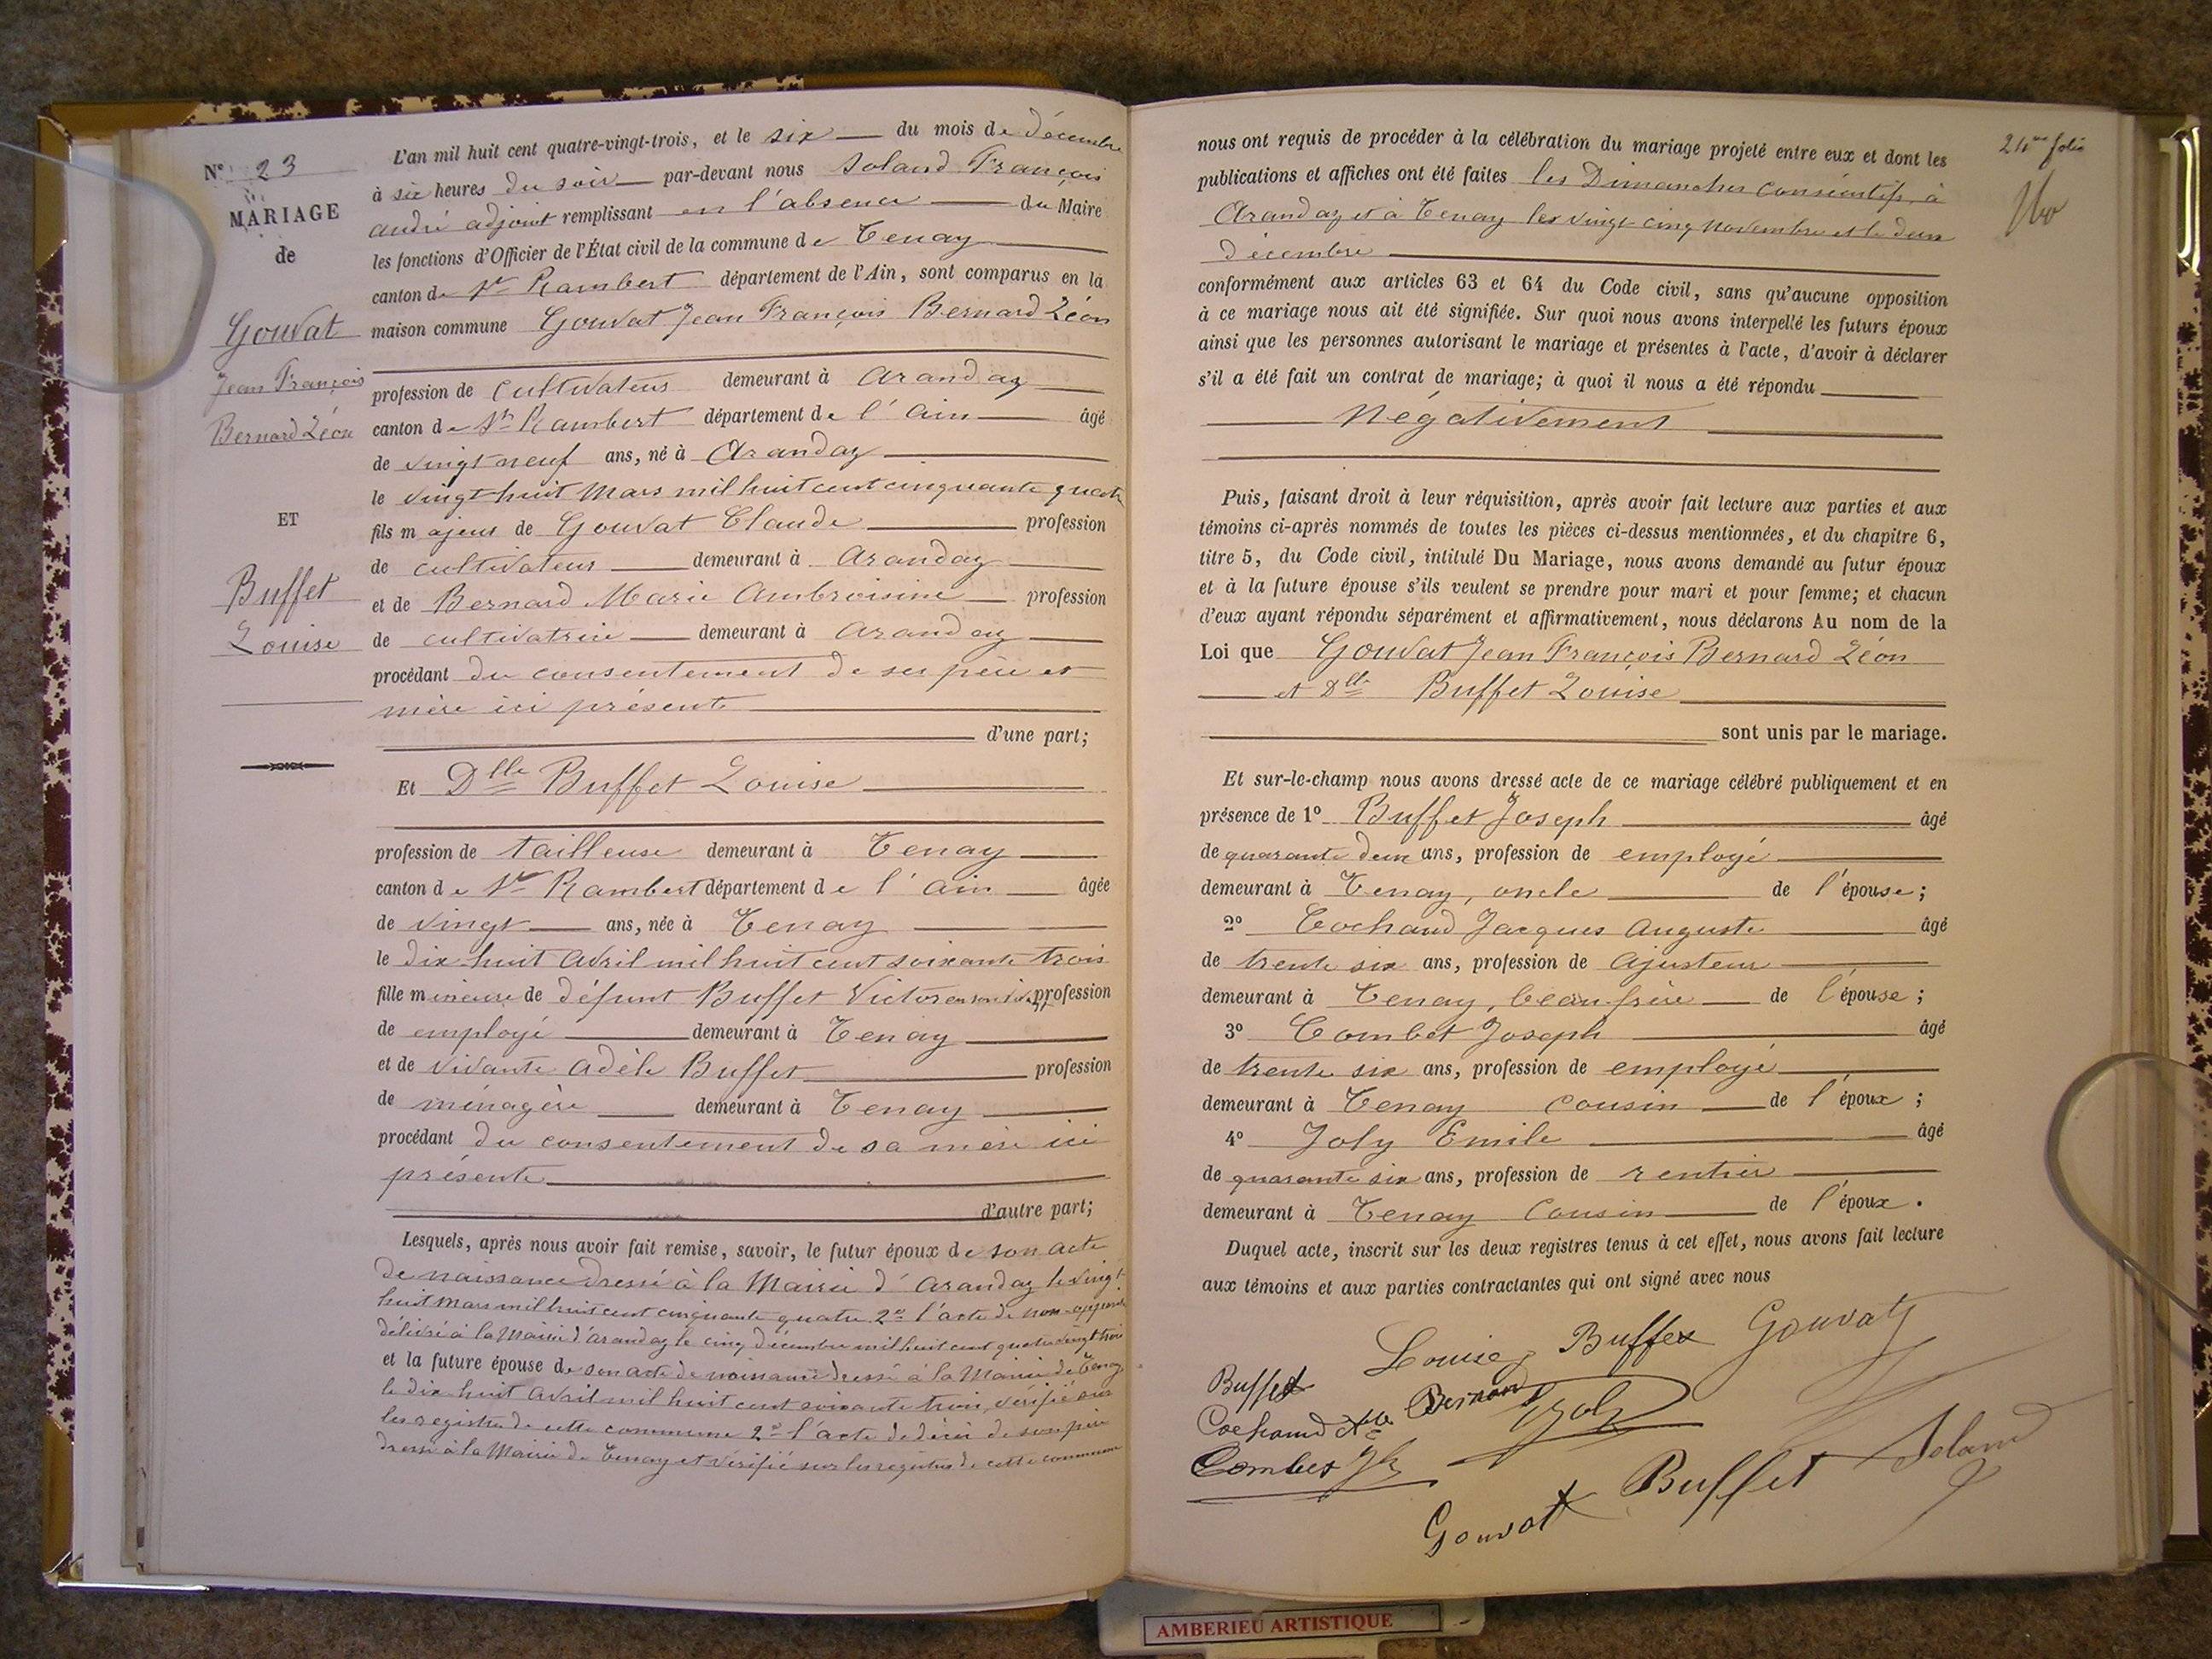 N° 23
MARIAGE
de
Gouvat
Jean François
Bernard Léon
ET
Buffet
Louise
L'an mil huit cent quatre-vingt-trois, et le six du mois de décembre
à six heures du soir par-devant nous Soland François
andré adjoint remplissant en l'absence du Maire
les fonctions d'Officier de l'État civil de la commune de Tenay
canton de St Rambert département de l'Ain, sont comparus en la
maison commune Gouvat Jean François Bernard Léon
profession de cultivateur demeurant à Aranday
canton de St Rambert département de l'Ain âgé
de vingt neuf ans, né à Aranday
le vingt huit Mars mil huit cent cinquante quatre
fils majeur de Gouvat Claude profession
de cultivateur demeurant à Aranday
et de Bernard Marie Ambroisine profession
de cultivatrice demeurant à Aranday
procédant du consentement de ses père et
mère ici présents
d'une part;
Et Dlle Buffet Louise
profession de tailleuse demeurant à Tenay
canton de St Rambert département de l'Ain âgée
de vingt ans, née à Tenay
le dix huit Avril mil huit cent soixante trois
fille mineure de défunt Buffet Victor en son vivant profession
de employé demeurant à Tenay
et de vivante Adèle Buffet profession
de ménagère demeurant à Tenay
procédant du consentement de sa mère ici
présente
d'autre part;
Lesquels, après nous avoir fait remise, savoir, le futur époux de son acte
de naissance dressé à la Mairie d'Aranday le vingt
huit mars mil huit cent cinquante quatre 2° l'acte de non-opposition
délivré à la Mairie d'Aranday le cinq décembre mil huit cent quatre vingt trois
et la future épouse de son acte de naissance dressé à la Mairie de Tenay
le dix huit Avril mil huit cent soixante trois, vérifié sur
les registres de cette commune 2° l'acte de décès de son père
dressé à la Mairie de Tenay et vérifié sur les registres de cette commune
24me folio
nous ont requis de procéder à la célébration du mariage projeté entre eux et dont les
publications et affiches ont été faites les Dimanches consécutifs, à
Aranday et à Tenay les vingt-cinq novembre et le deux
décembre
conformément aux articles 63 et 64 du Code civil, sans qu'aucune opposition
à ce mariage nous ait été signifiée. Sur quoi nous avons interpellé les futurs époux
ainsi que les personnes autorisant le mariage et présentes à l'acte, d'avoir à déclarer
s'il a été fait un contrat de mariage; à quoi il nous a été répondu
Négativement
Puis, faisant droit à leur réquisition, après avoir fait lecture aux parties et aux
témoins ci-après nommés de toutes les pièces ci-dessus mentionnées, et du chapitre 6,
titre 5, du Code civil, intitulé Du Mariage, nous avons demandé au futur époux
et à la future épouse s'ils veulent se prendre pour mari et pour femme; et chacun
d'eux ayant répondu séparément et affirmativement, nous déclarons Au nom de la
Loi que Gouvat Jean François Bernard Léon
et Dlle Buffet Louise
sont unis par le mariage.
Et sur-le-champ nous avons dressé acte de ce mariage célébré publiquement et en
présence de 1° Buffet Joseph âgé
de quarante deux ans, profession de employé
demeurant à Tenay, oncle de l'épouse;
2° Cochand Jacques Auguste âgé
de trente six ans, profession de Ajusteur
demeurant à Tenay, beau-frère de l'épouse;
3° Combet Joseph âgé
de trente six ans, profession de employé
demeurant à Tenay cousin de l'époux;
4° Joly Emile âgé
de quarante six ans, profession de rentier
demeurant à Tenay Cousin de l'époux.
Duquel acte, inscrit sur les deux registres tenus à cet effet, nous avons fait lecture
aux témoins et aux parties contractantes qui ont signé avec nous
Louise Buffet Gouvat
Buffet Bernard Joly
Cochand Ate
Combet Jh
Gouvat Buffet Soland
AMBERIEU ARTISTIQUE